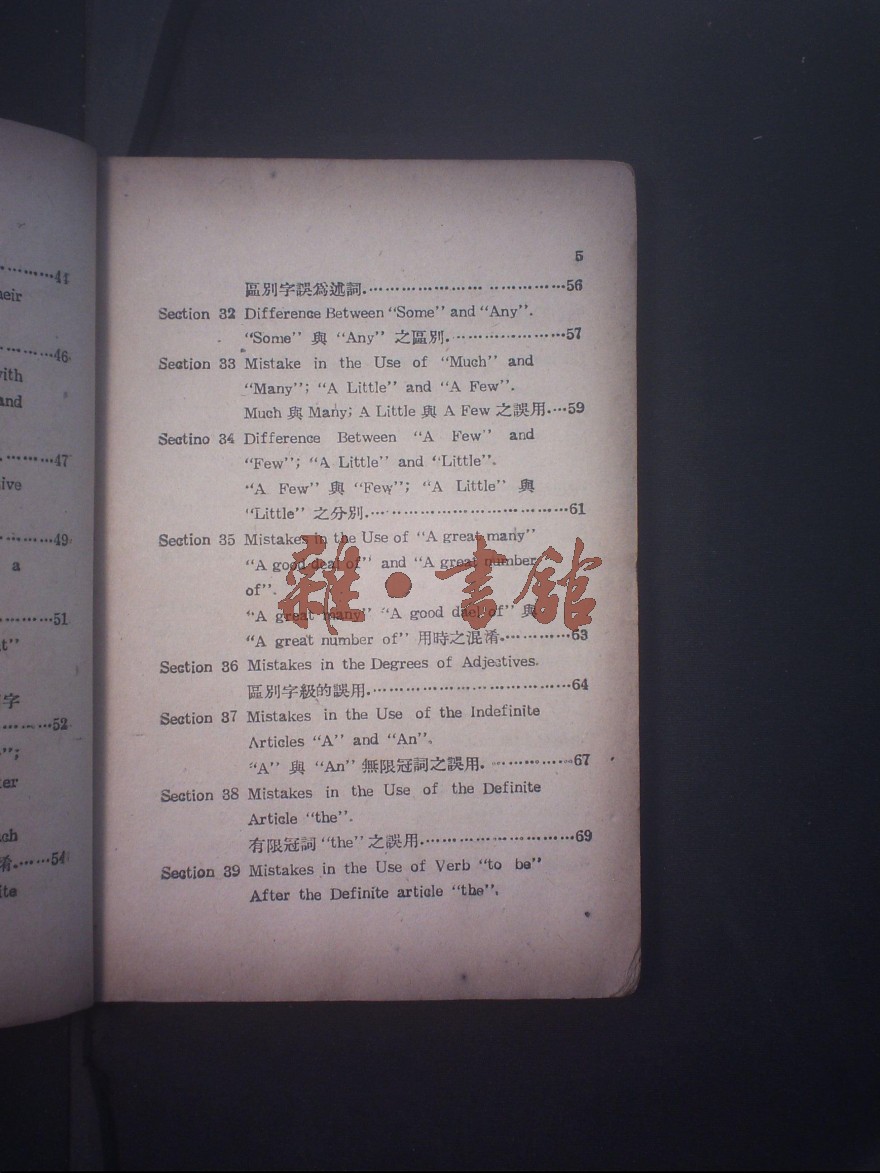 44
eir
46
ith
and
47
ive
49
a
51
t"
字
52
";
er
ch
淆.……54
ite
5
區別字誤爲述詞.…………………………56
Section 32 Difference Between "Some" and "Any".
"Some" 與 "Any" 之區別.…………………57
Section 33 Mistake in the Use of "Much" and
"Many"; "A Little" and "A Few".
Much 與 Many; A Little 與 A Few 之誤用.…59
Sectino 34 Difference Between "A Few" and
"Few"; "A Little" and "Little".
"A Few" 與 "Few"; "A Little" 與
"Little" 之分別.………………………………61
Section 35 Mistakes in the Use of "A great many"
"A good deal of" and "A great number
of".
"A great many" "A good dael of" 與
"A great number of" 用時之混淆.…………63
雜·書館
Section 36 Mistakes in the Degrees of Adjectives.
區別字級的誤用.………………………………64
Section 37 Mistakes in the Use of the Indefinite
Articles "A" and "An".
"A" 與 "An" 無限冠詞之誤用.……………67
Section 38 Mistakes in the Use of the Definite
Article "the".
有限冠詞 "the" 之誤用.………………………69
Section 39 Mistakes in the Use of Verb "to be"
After the Definite article "the".